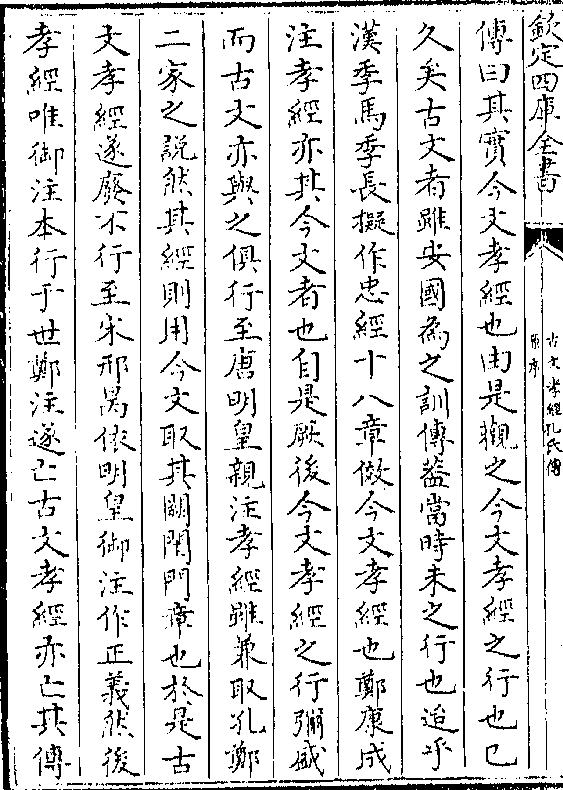 欽定四庫全書
古文孝經孔氏傳
原序
傳曰其實今文孝經也由是觀之今文孝經之行也已
久矣古文者雖安國為之訓傳葢當時未之行也迨乎
漢季馬季長擬作忠經十八章倣今文孝經也鄭康成
注孝經亦其今文者也自是厥後今文孝經之行彌盛
而古文亦與之俱行至唐明皇親注孝經雖兼取孔鄭
二家之説然其經則用今文取其闕閨門章也於是古
文孝經遂廢不行至宋邢昺依明皇御注作正義然後
孝經唯御注本行于世鄭注遂亡古文孝經亦亡其傳